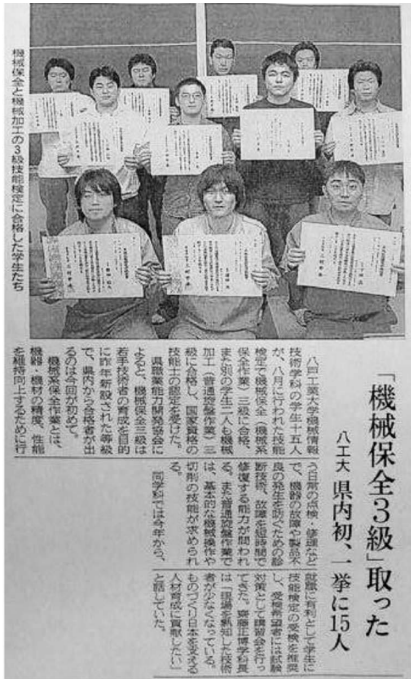 「機械保全3級」取った
八工大 県内初、一挙に15人
八戸工業大学機械情報
技術学科の学生十五人
が、八月に行われた技能
検定で機械保全（機械系
保全作業）三級に合格、
また別の学生二人も機械
加工（普通旋盤作業）三
級に合格し、国家資格の
技能士の認定を受けた。
県職業能力開発協会に
よると、機械保全三級は
若手技術者の育成を目的
に昨年新設された等級
で、県内から合格者が出
るのは今回が初めて。
機械系保全作業とは、
機器・機材の精度、性能
を維持向上するために行
う日常の点検・修理など
で、機器の故障や製品不
良の発生を防ぐための診
断技術、故障を短時間で
修復する能力が問われ
る。また普通旋盤作業で
は、基本的な機械操作や
切削の技能が求められ
る。
同学科では今年から、
就職に有利として学生に
技能検定の受検を推奨
し、受検希望者には試験
対策として講習会を行っ
てきた。齋藤正博学科長
は「現場を熟知した技術
者が少なくなっている。
ものづくり日本を支える
人材育成に貢献したい」
と話していた。
機械保全と機械加工の3級技能検定に合格した学生たち